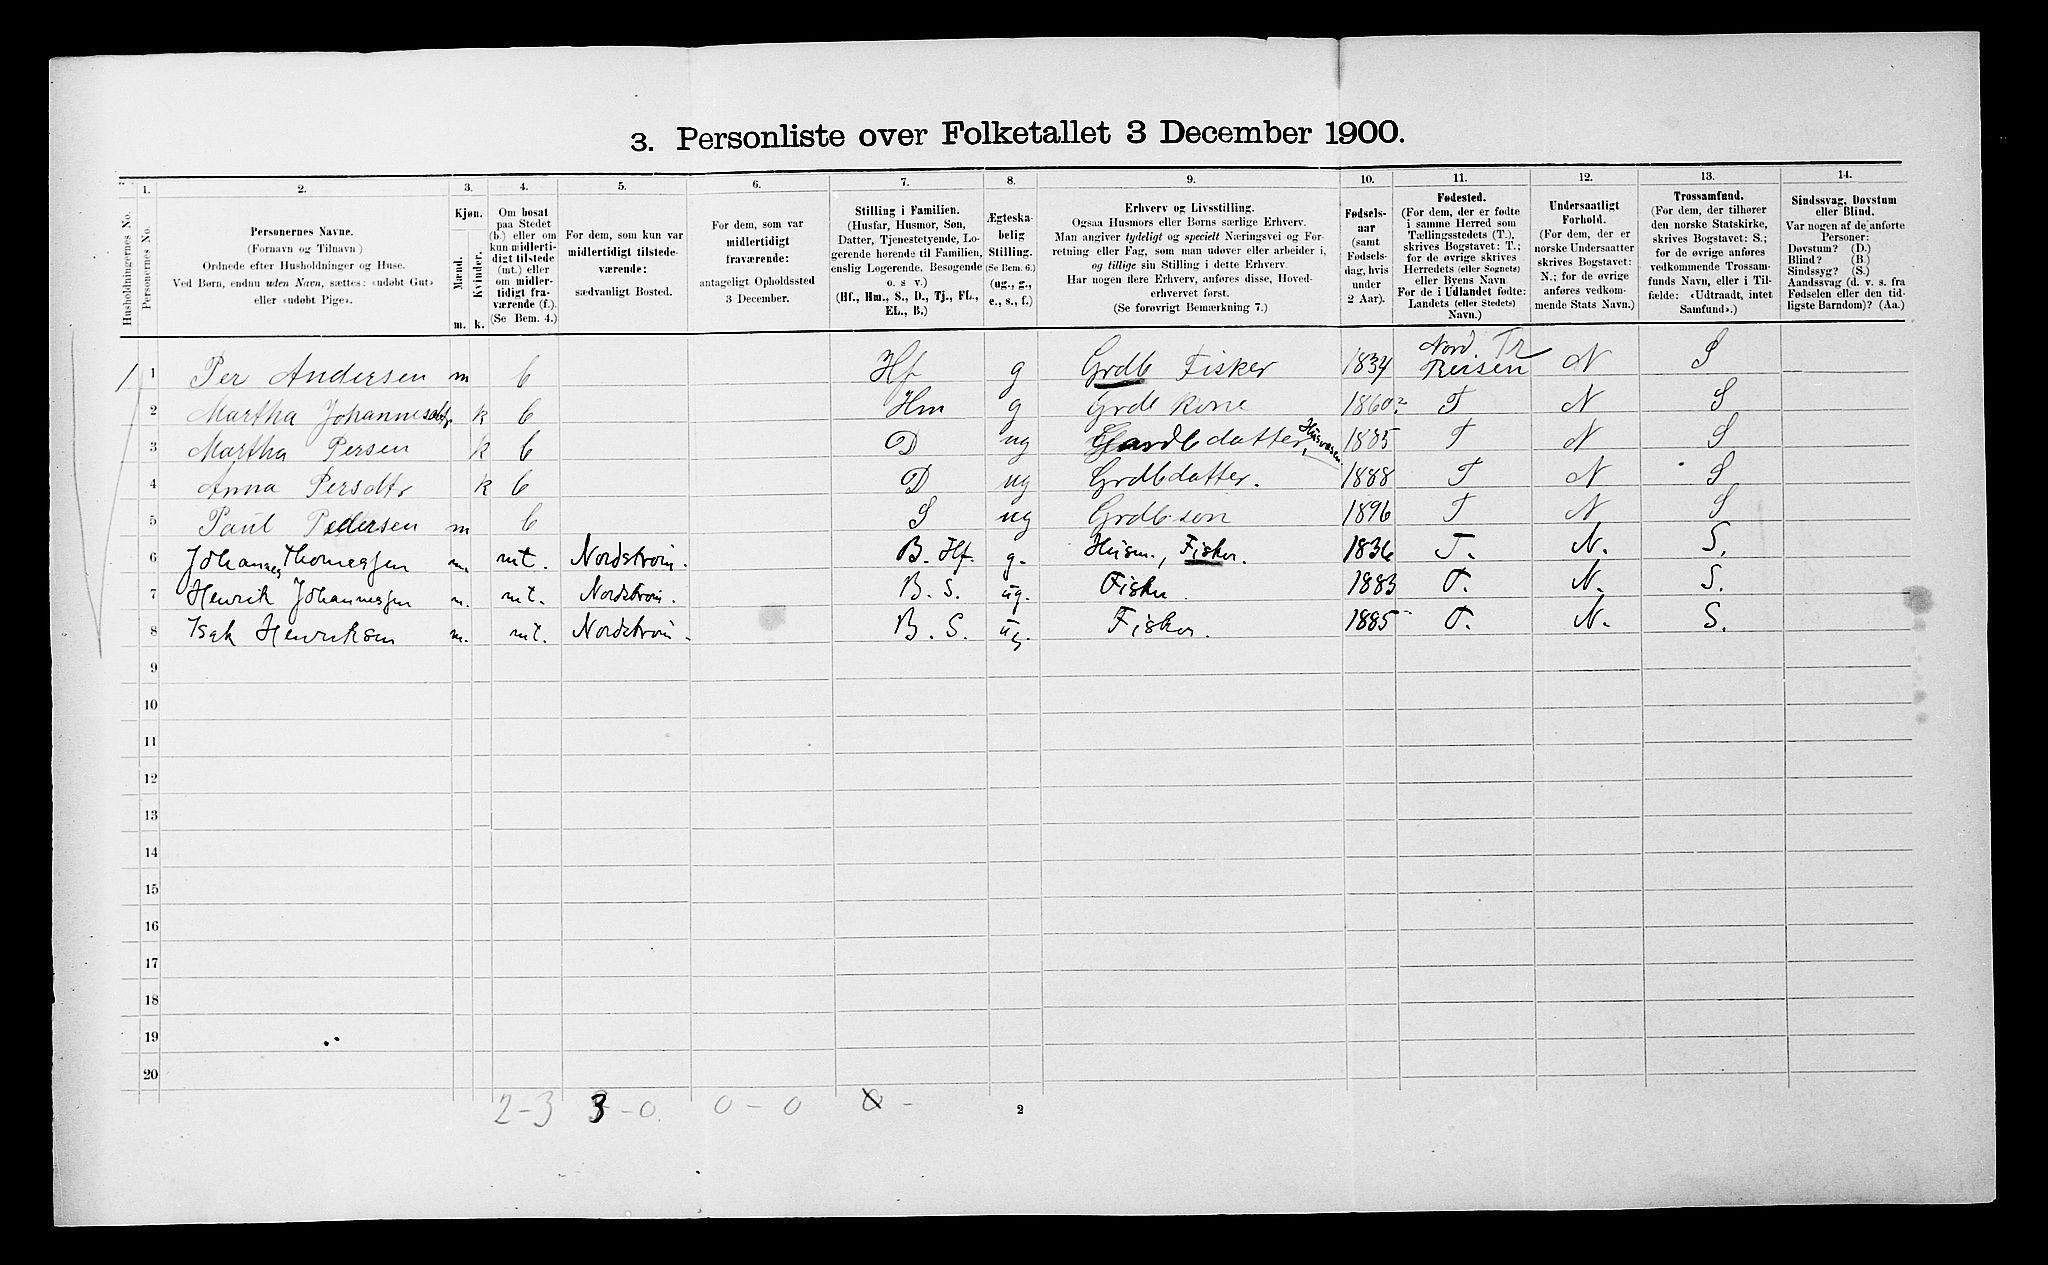 3. Personliste over Folketallet 3 December 1900.
Husholdningernes No.
1. Personernes No.
2. Personernes Navne.
(Fornavn og Tilnavn)
Ordnede efter Husholdninger og Huse.
Ved Børn, endnu uden Navn, sættes: «udøbt Gut»
eller «udøbt Pige».
3. Kjøn.
Mænd. m.
Kvinder. k.
4. Om bosat
paa Stedet
(b.) eller om
kun midlerti-
digt tilstede
(mt.) eller
om midler-
tidigt fra-
værende (f.)
(Se Bem. 4.)
5. For dem, som kun var
midlertidigt tilstede-
værende:
sædvanligt Bosted.
6. For dem, som var
midlertidigt
fraværende:
antageligt Opholdssted
3 December.
7. Stilling i Familien.
(Husfar, Husmor, Søn,
Datter, Tjenestetyende, Lo-
gerende hørende til Familien,
enslig Logerende, Besøgende
o. s v.)
(Hf., Hm., S., D., Tj., FL.,
EL., B.)
8. Ægteska-
belig
Stilling.
(Se Bem. 6.)
(ug., g.,
e., s., f.)
9. Erhverv og Livsstilling.
Ogsaa Husmors eller Børns særlige Erhverv.
Man angiver tydeligt og specielt Næringsvei og For-
retning eller Fag, som man udøver eller arbeider i,
og tillige sin Stilling i dette Erhverv.
Har nogen flere Erhverv, anføres disse, Hoved-
erhvervet først.
(Se forøvrigt Bemærkning 7.)
10. Fødsels-
aar
(samt
Fødsels-
dag, hvis
under
2 Aar).
11. Fødested.
(For dem, der er fødte
i samme Herred som
Tællingsstedets (T.),
skrives Bogstavet: T.;
for de øvrige skrives
Herredets (eller Sognets)
eller Byens Navn
For de i Udlandet fødte:
Landets (eller Stedets)
Navn.)
12. Undersaatligt
Forhold.
(For dem, der er
norske Undersaatter
skrives Bogstavet:
N.; for de øvrige
anføres vedkom-
mende Stats Navn.)
13. Trossamfund.
(For dem, der tilhører
den norske Statskirke,
skrives Bogstavet: S.;
for de øvrige anføres
vedkommende Trossam-
funds Navn, eller i Til-
fælde: «Udtraadt, intet
Samfund».)
14. Sindssvag, Døvstum
eller Blind.
Var nogen af de anførte
Personer:
Døvstum? (D.)
Blind? (B.)
Sindssyg? (S.)
Aandssvag (d. v. s. fra
Fødselen eller den tid-
ligste Barndom)? (Aa.)
1 1 Per Andersen m b Hf g Grdb Fisker 1834 Nord. Reisen Tr N S
2 Martha Johannesdtr k b Hm g Grdb kone 1860? T N S
3 Martha Persen k b D ug Gaardb datter, Husvæsen 1885 T N S
4 Anna Persdtr k b D ug Grdb datter. 1888 T N S
5 Paul Pedersen m b S ug Grdb. søn 1896 T N S
6 Johannes Thomessen m. mt. Nordstrøm. B. Hf. g. Husm., Fisker. 1836 T. N. S.
7 Henrik Johannessen m. mt. Nordstrøm. B. S. ug. Fisker. 1883 T. N. S.
8 Isak Henriksen m. mt. Nordstrøm. B. S. ug. Fisker. 1885 T. N. S.
9
10
11
12
13
14
15
16
17
18
19
20
2-3 3-0. 0-0 0 -
2